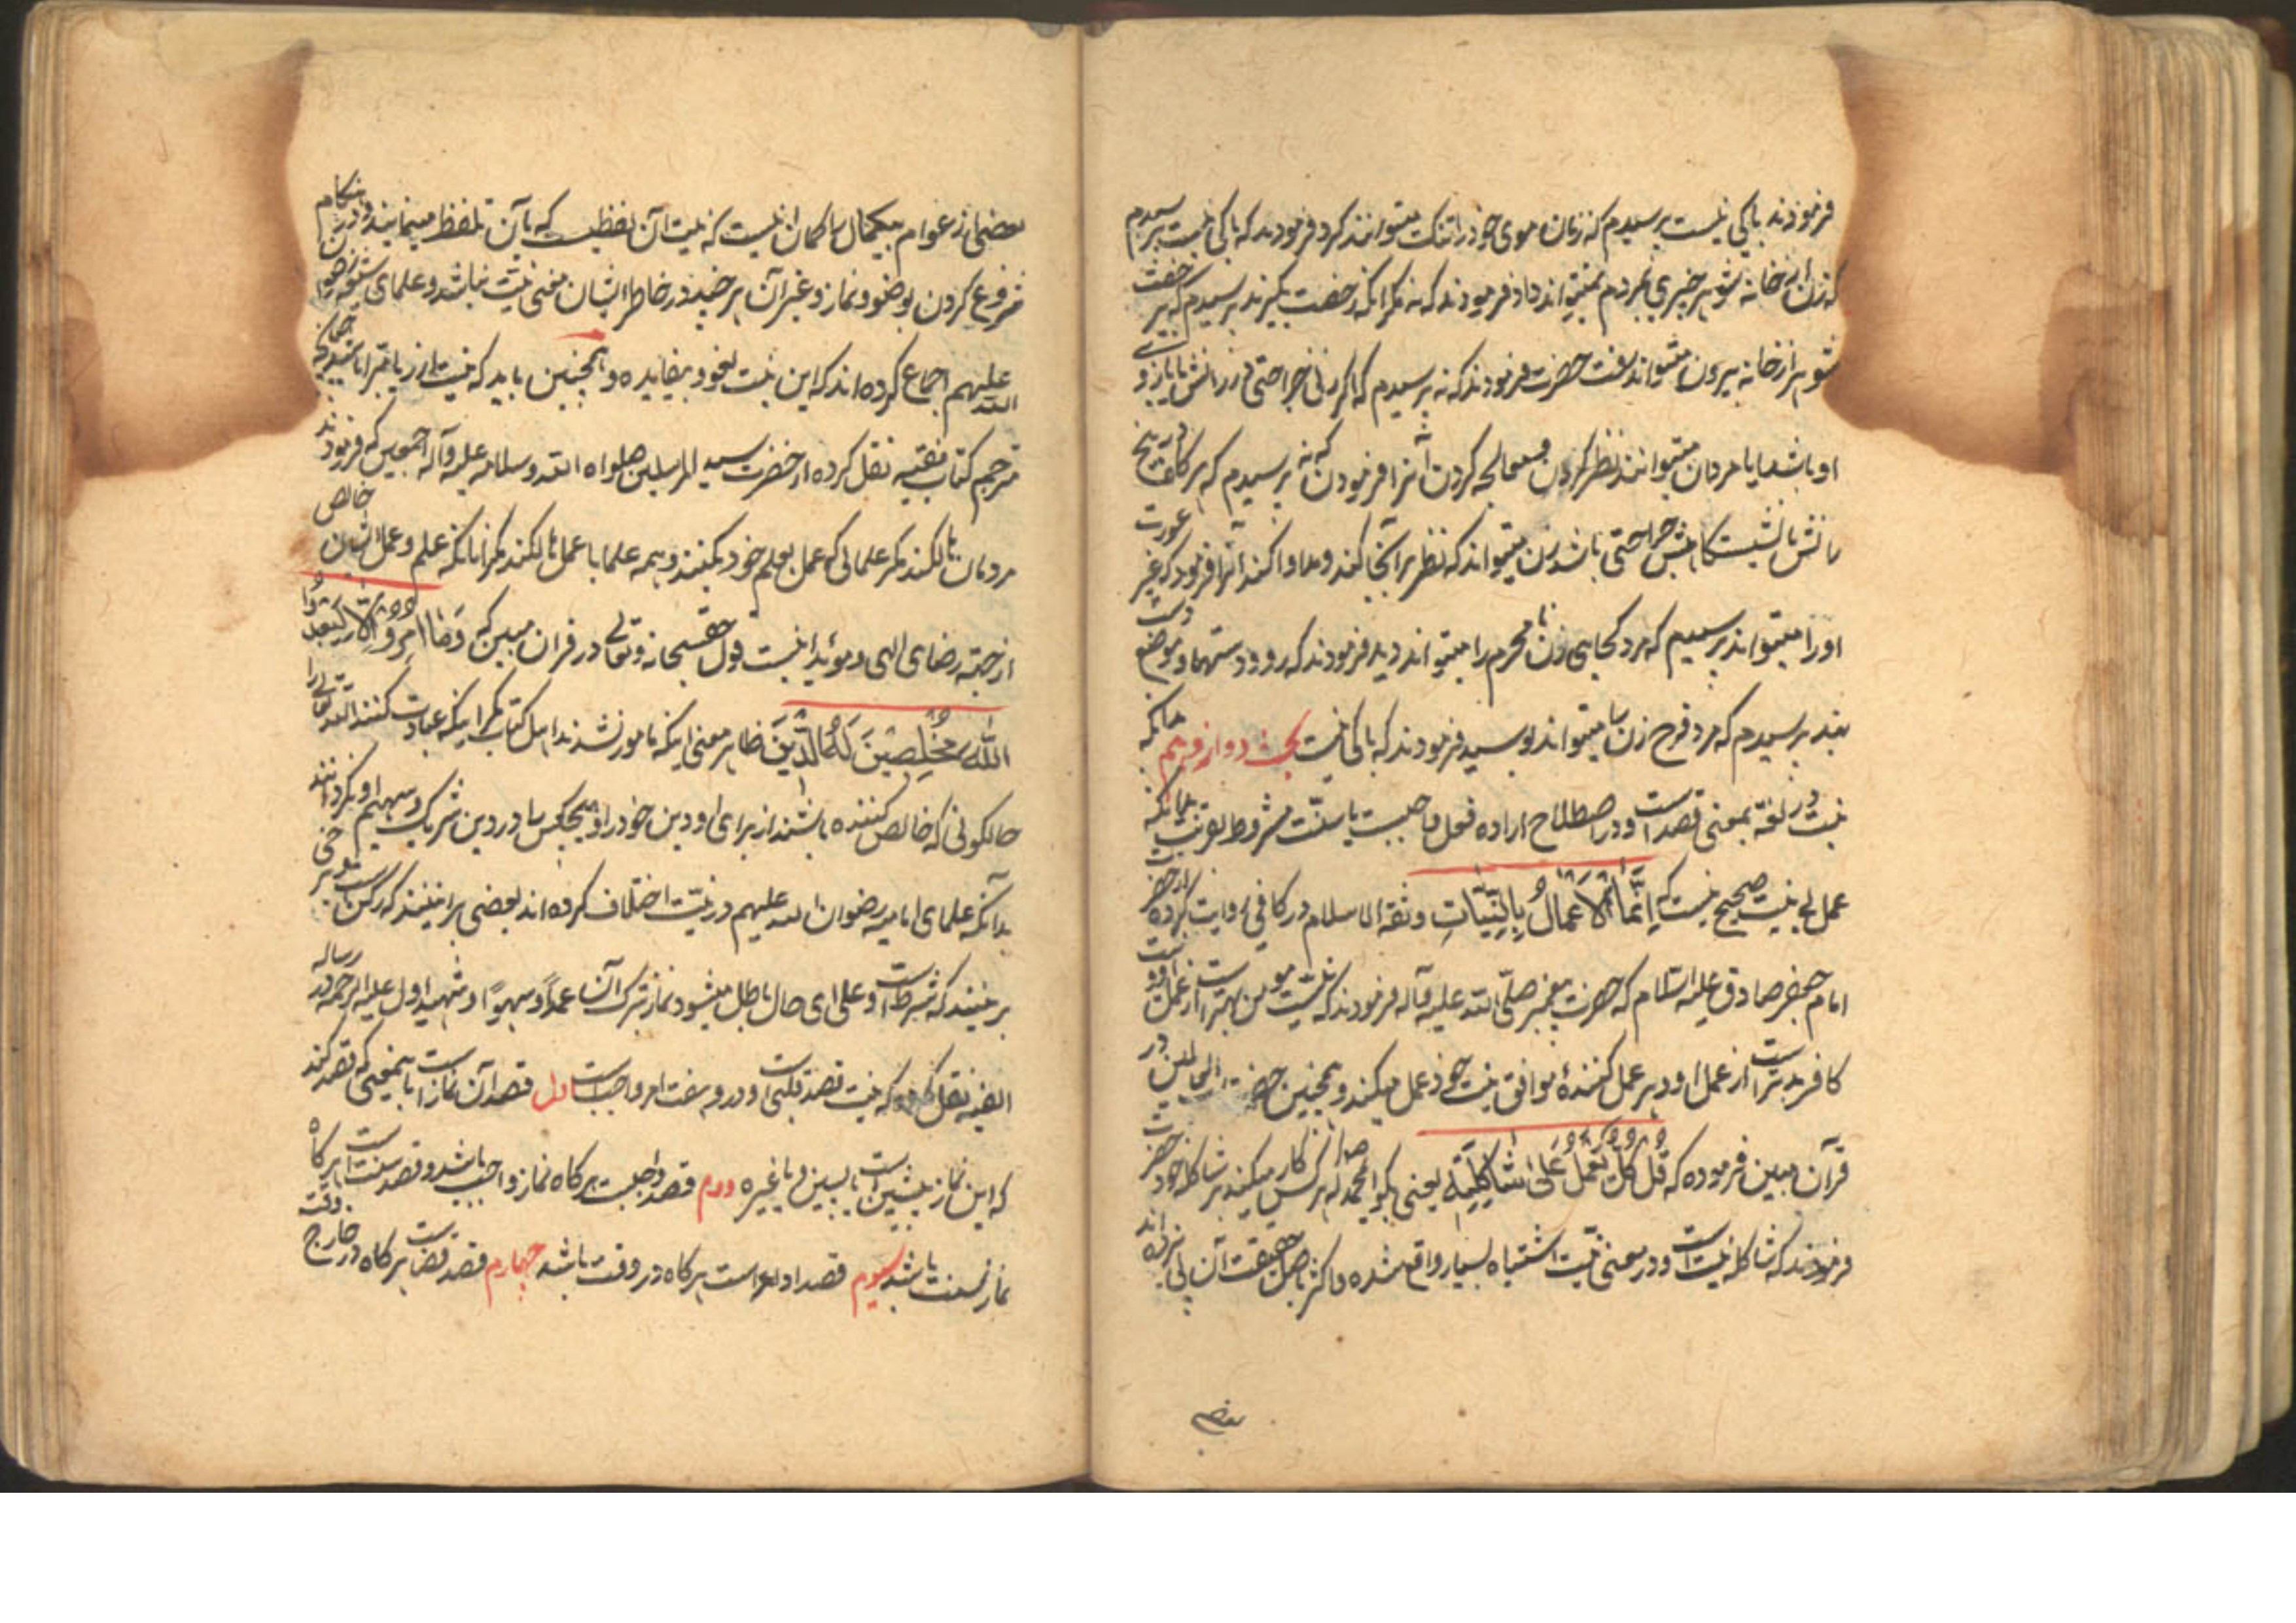 فرمودند باکی نیست پرسیدم که زنان موی خود را تنک میتوانند کرد فرمودند که باکی نیست پرسیدم
که زن از خانه شوهر چیزی بمردم میتواند داد فرمودند که نه مکر آنکه رخصت بگیرند پرسیدم که بی رخصت
شوهر از خانه بیرون میتواند رفت حضرت فرمودند که نه پرسیدم که اگر زنی جراحتی در رانش یا بازوی
او باشد ایا مردان میتوانند نظر کردن و معالجه کردن آنرا فرمودن که نه پرسیدم که هرکاه در بیخ
رانش یا نشیمنکاهش جراحتی باشد زن میتواند که نظر بر آنجا کند و مداوا کند آنرا فرمود که غیر عورت
اورا میتواند پرسیدم که مرد کجاهای زن نا محرم را میتواند دید فرمودند که رو و دستها و موضع دست
بند پرسیدم که مرد فرج زن را میتواند بوسید فرمودند که باکی نیست بحث دوازدهم بدانکه
نیت در لغة بمعنی قصد است و در اصطلاح اراده فعل واجبست یا سنّت مشروط بقربت بدانکه
عمل بی نیت صحیح نیست که اِنَّمَا الْاَعْمَالُ بِالنِّیَّاتِ و ثقة الاسلام در کافی روایت کرده از حضرت
امام جعفر صادق علیه السّلام که حضرت پیغمبر صلّی الله علیه و آله فرمودند که نیت مومن بهتر است از عمل او و نیت
کافر بدتر است از عمل او و هر عمل کنندهٔ موافق نیت خود عمل میکند و همچنین حضرت اله العالمین در
قرآن مبین فرموده که قُلْ کُلٌّ یَعْمَلُ عَلیٰ شَاکِلَتِهِ یعنی بگو ای محمد که هر کس کار میکند بر شاکله خود حضرت
فرمودند که شاکله نیت است و در معنی نیت اشتباه بسیار واقع شده و اکثر باصل حقیقت آن پی نبرده اند
بعضی
بعضی از عوام بیکمال را کمان انیست که نیت آن لفظیست که بآن تلفظ مینمایند و در هنکام
شروع کردن بوضو و نماز و غیر آن هر چند در خاطر ایشان معنی نیت نباشد و علمای شیعه رضوان
الله علیهم اجماع کرده اند که این نیت لغو و بیفایده و همچنین باید که نیت از ریا مبرا باشد چنانکه
مترجم کتاب فقیه نقل کرده از حضرت سید المرسلین صلواة الله و سلامه علیه و آله اجمعین که فرمودند
مردمان هالکند مکر علمائی که عمل بعلم خود میکنند و همه علما با عمل هالکند مکر آنانکه علم و عمل ایشان خالص
از جهة رضای الهی و مؤید اینست قول حقسبحانه و تعالی در قران مبین که وَمَا اُمِرُوا اِلَّا لِیَعْبُدُوا
اللّٰهَ مُخْلِصِینَ لَهُ الدِّینَ ظاهر معنی اینکه مامور نشدند اهل کتاب مکر اینکه عبادت کنند الله تعالی را
حالکونی که خالص کننده باشند از برای او دین خود را و هیچکس را در دین شریک و سهیم او نکردانند
بدانکه علمای امامیه رضوان الله علیهم در نیّت اختلاف کرده اند بعضی برانینند که رکن است و بعضی بر
برینند که شرط است و علی ای حال باطل میشود نماز بترک آن عمداً و سهواً و شهید اول علیه الرحمه در رساله
الفیه نقل کرده که نیت قصد قلبی است و درو هفت امر واجب است اول قصد آن نماز است باینمعنی که قصد کند
که این نماز پیشین است یا پسین و یا غیره دوم قصد واجبست هرکاه نماز واجب باشد و قصد سنت است هرکاه
نماز سنت باشد سیوم قصد ادا است هرکاه در وقت باشد چهارم قصد قضا است هرکاه در خارج وقت